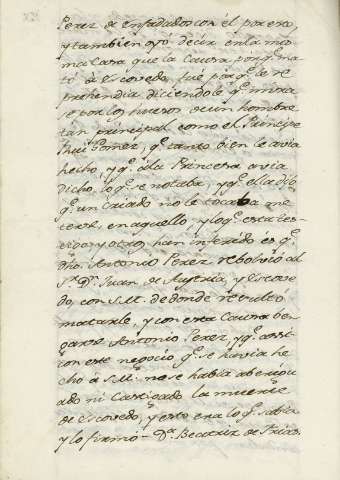 Perez de enfadados con él por esto,
y tambien oyó decir en la mis
ma Casa que la Causa porq.e ma
tó a Escovedo fué porq.e le re
prehendia, diciendole q.e mira
se por los huesos de un hombre
tan principal como el Principe
Rui Gomez, q.e tanto bien le avia
hecho, y q.e a la Princesa avia
dicho lo q.e se notaba, y q.e ella dijo
q.e un Criado no le tocaba me
terse en aquello, y lo q.e este tes-
tigo y otros han inferido es q.e
dho. Antonio Perez rebolvió al
S.r D.n Juan de Austria y Escove
do, con S.M. de donde resulto
matarle, y con esta Causa ven
garse Antonio Perez, y q.e assi
con este negocio q.e se havia he
cho a S.M. no se habia averigu
ado ni Castigado la muerte
de Escovedo, y esto era lo q.e sabia
y lo firmó - D.a Beatriz de Frias.